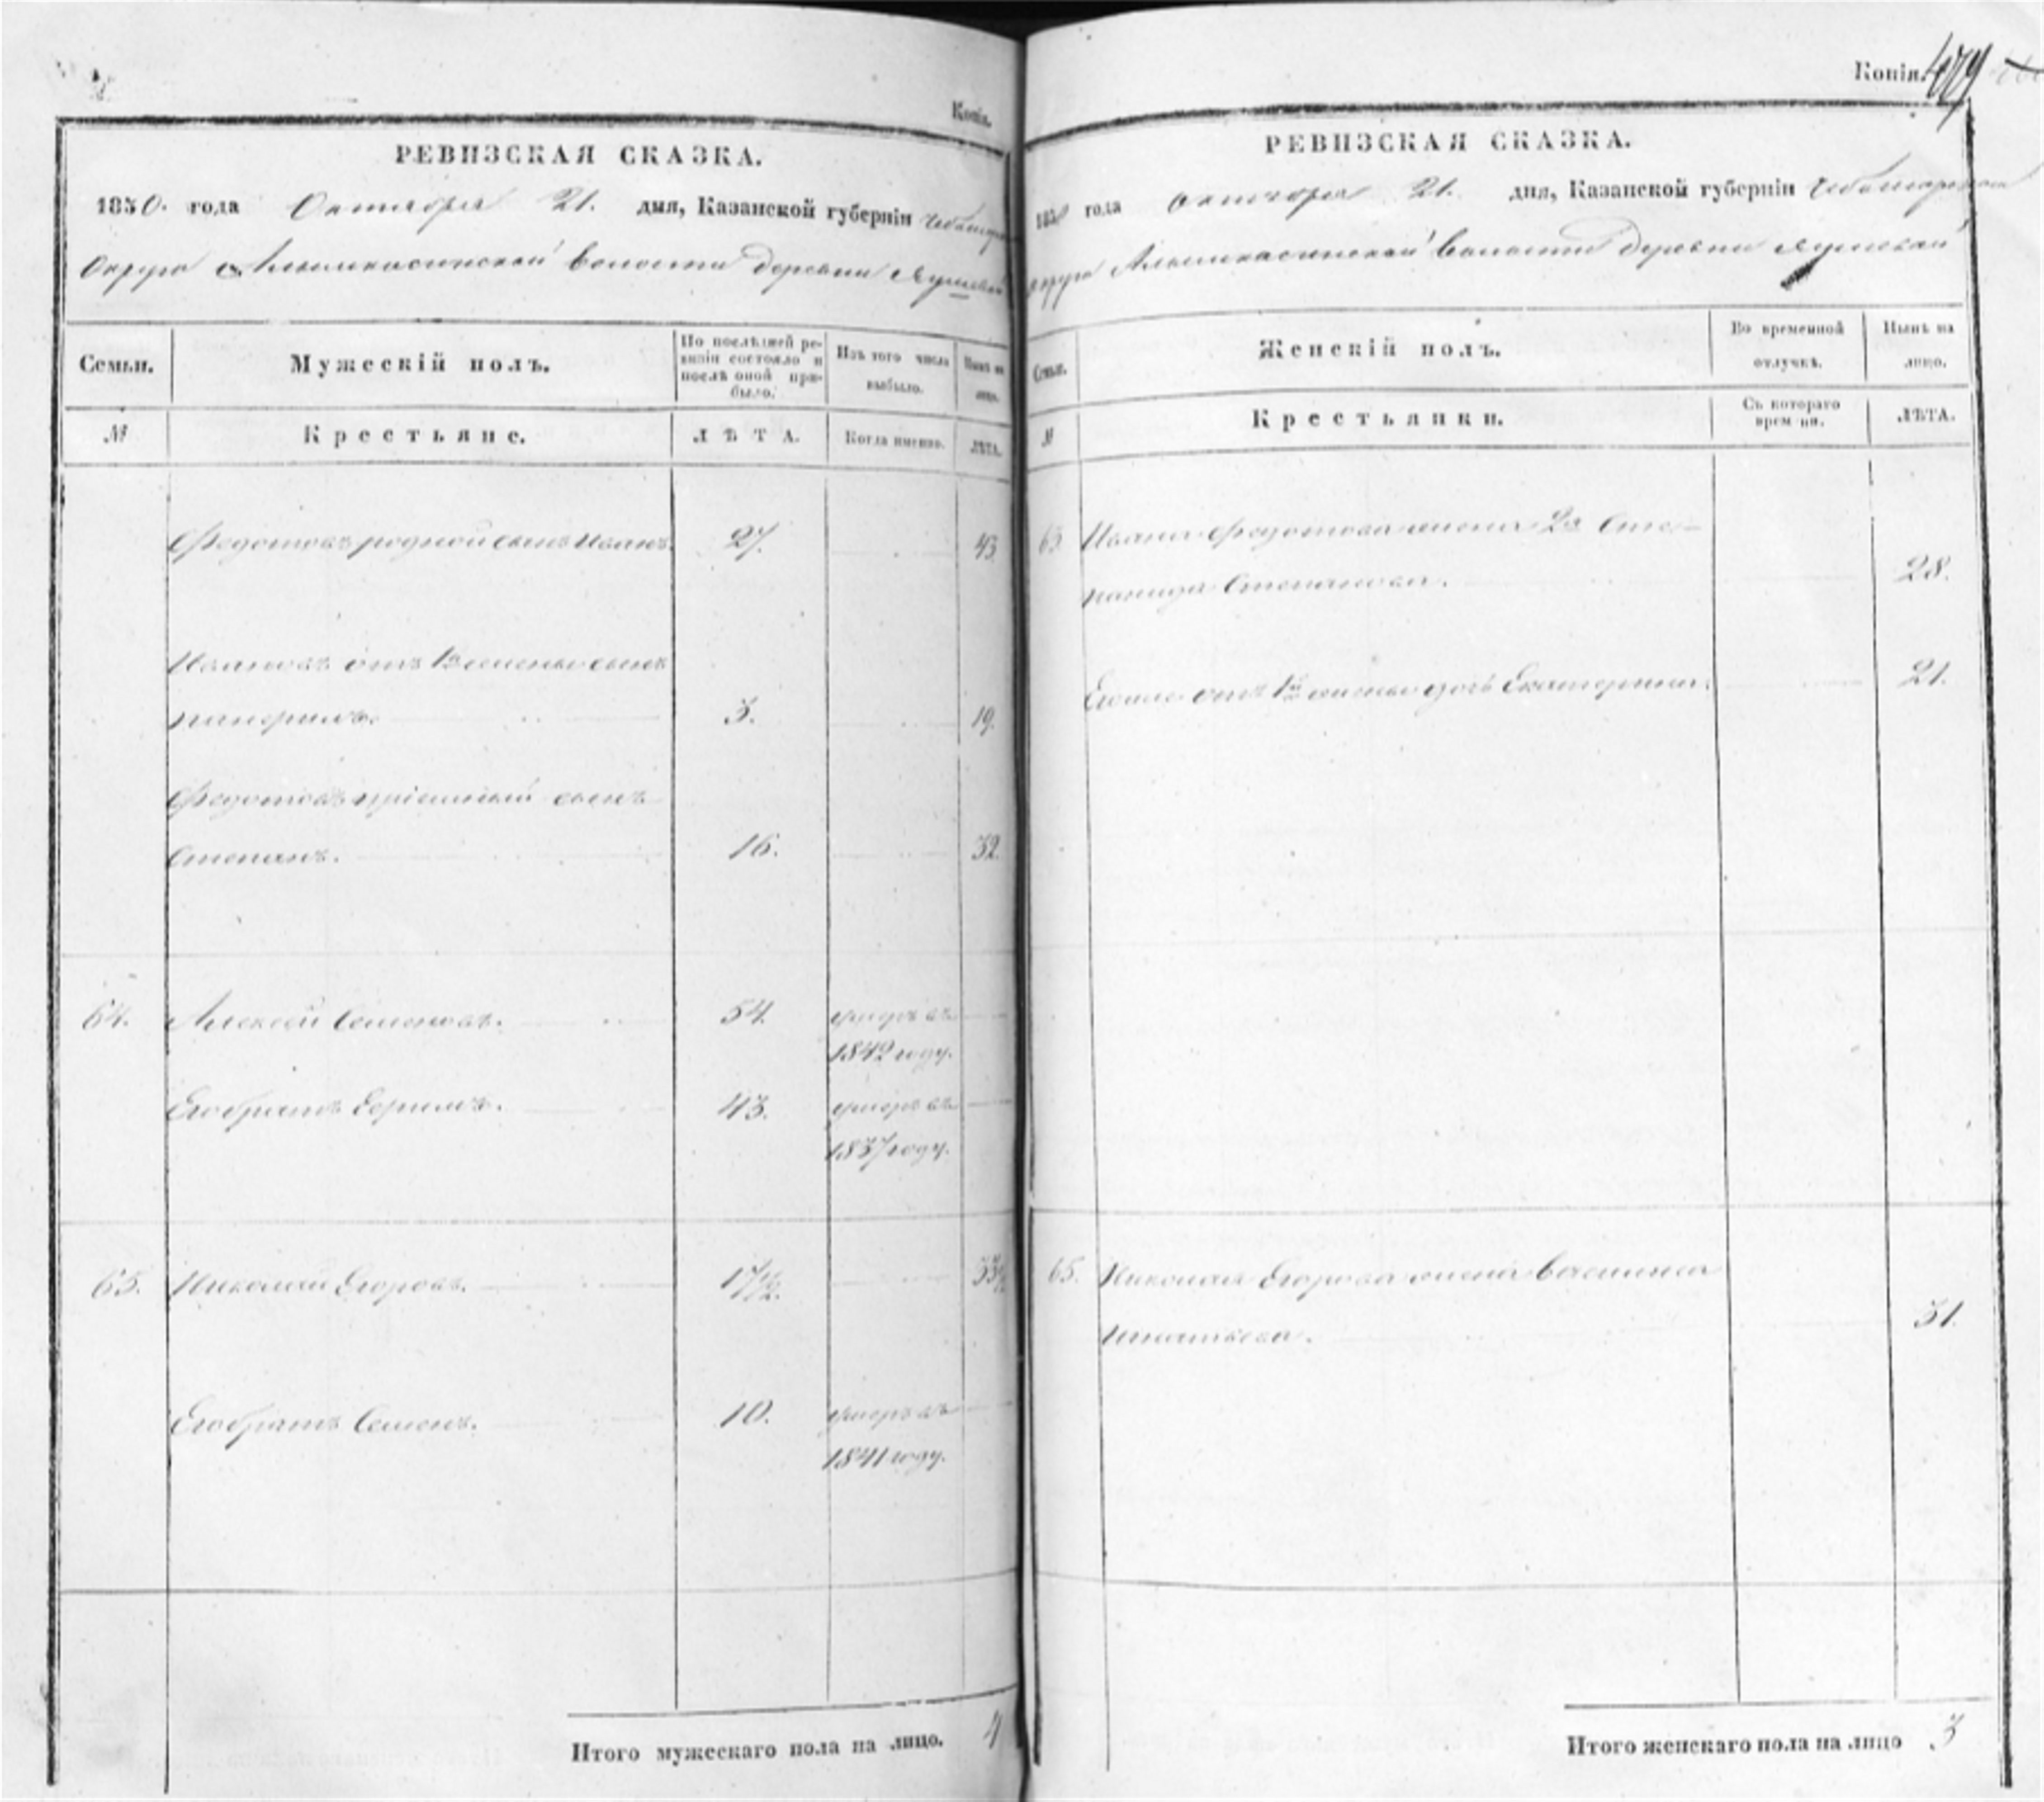 Копія.
РЕВИЗСКАЯ СКАЗКА.
1850. года Октября 21. дня, Казанской губерніи
Округа Алымкасинской волости деревни
Семьи.
Мужескій полъ.
По послѣдней ре-
визіи состояло и
послѣ оной при-
было.
Изъ того числа
выбыло.
Нынѣ на
лицо.
№
Крестьяне.
ЛѢТА.
Когда именно.
ЛѢТА.
Федотовъ родной сынъ Иванъ. 27. 43
Ивановъ отъ 1й жены сынъ
3. 19.
Федотовъ пріемный сынъ
Степанъ. 16. 32.
64. Алексей Семеновъ. 54. умеръ въ
1842 году.
Его братъ 43. умеръ въ
1837 году.
65. Николай Егоровъ. 17½. 33½
Его братъ Семенъ. 10. умеръ въ
1841 году.
Итого мужескаго пола на лицо. 4
Копія. 479
РЕВИЗСКАЯ СКАЗКА.
1850 года Октября 21. дня, Казанской губерніи
округа Алымкасинской волости деревни
Семьи.
Женскій полъ.
Во временной
отлучкѣ.
Нынѣ на
лицо.
№
Крестьянки.
Съ котораго
времени.
ЛѢТА.
63. Ивана Федотова жена 2я Сте-
панида Степанова. 28.
Его же отъ 1й жены дочь Екатерина. 21.
65. Николая Егорова жена Васлиса
Игнатьева. 31.
Итого женскаго пола на лицо 3